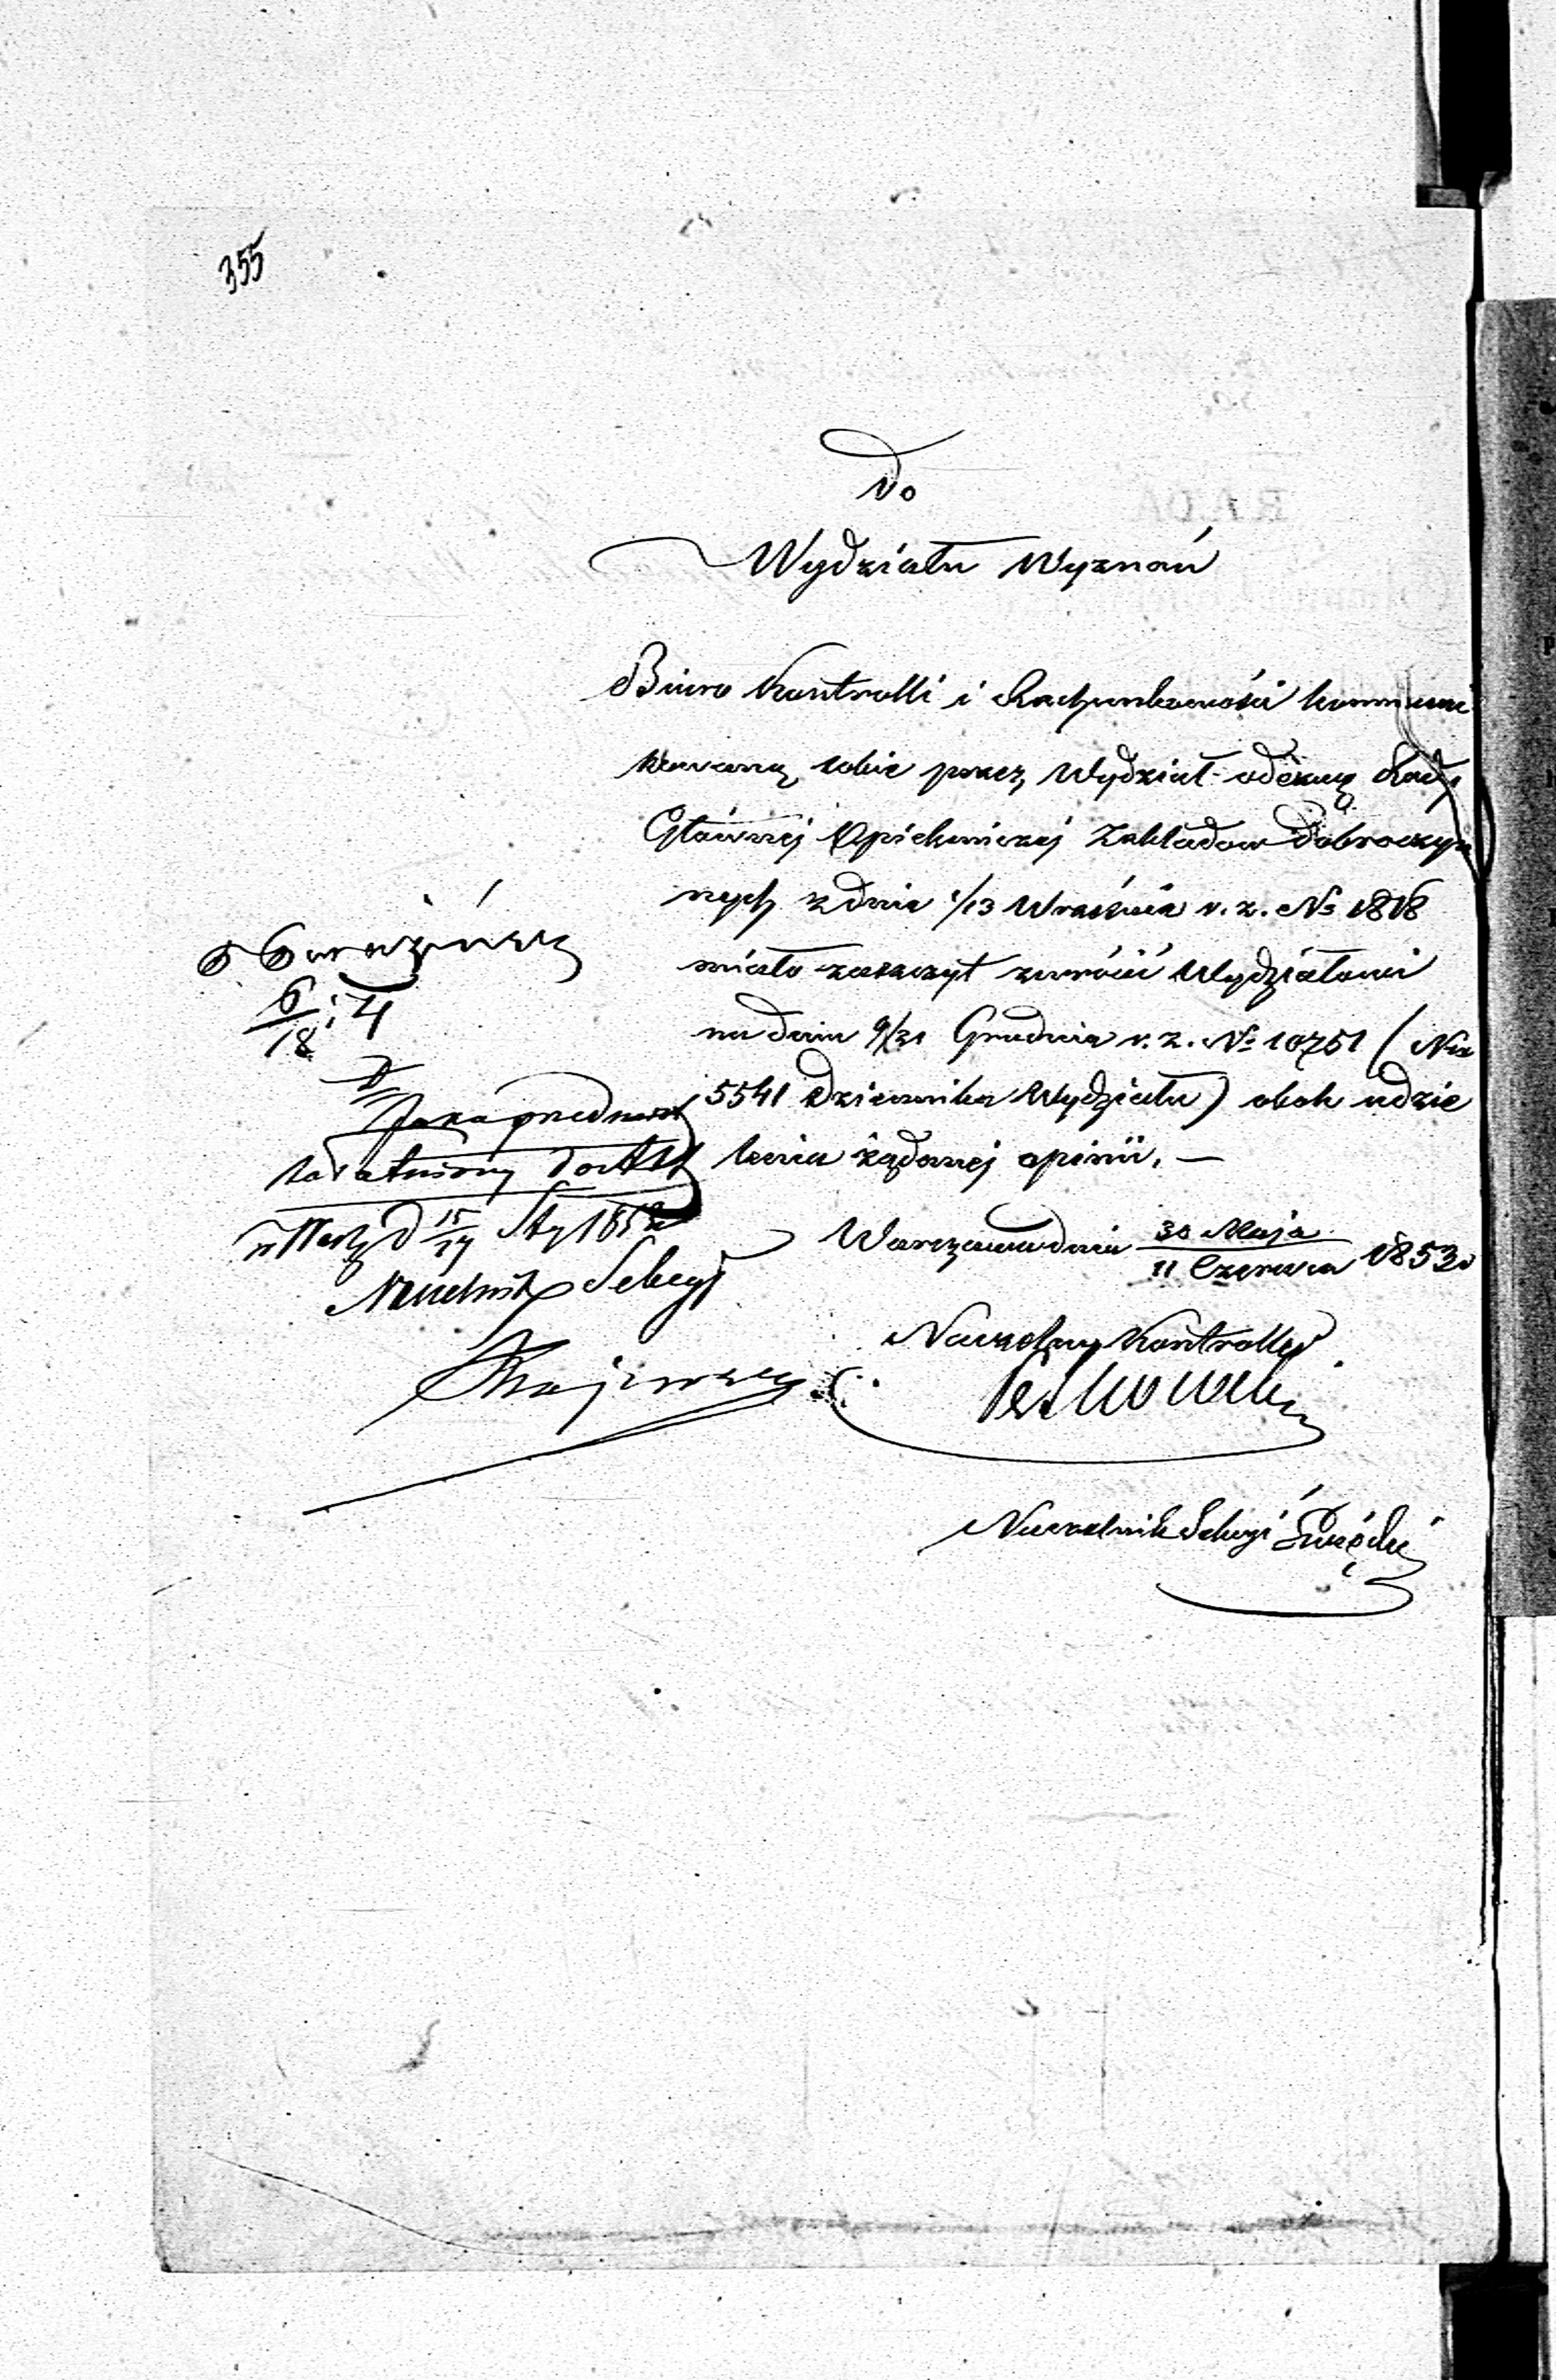 355
Do
Wydziału Wyznań
Biuro Kontrolli i Rachunkowości kommuni
kowaną sobie przez Wydział odezwę Rady
Głównej Opiekuńczej Zakładów Dobroczyn
nych z dnia 1/13 Września r. z. No 1818
miało zaszczyt zwrócić Wydziałowi
na dniu 9/21 Grudnia r. z. No 10751 (Nr
5541 dziennika Wydziału) obok udzie
lenia żądanej opinii. —
Warszawa dnia 30 Maja / 11 Czerwca 1853
Naczelny Kontroller
Naczelnik Sekcyi
6/18 4
Jako przedmiot
załatwiony do Akt
d 15/27 Sty
Naczelnik Sekcyi